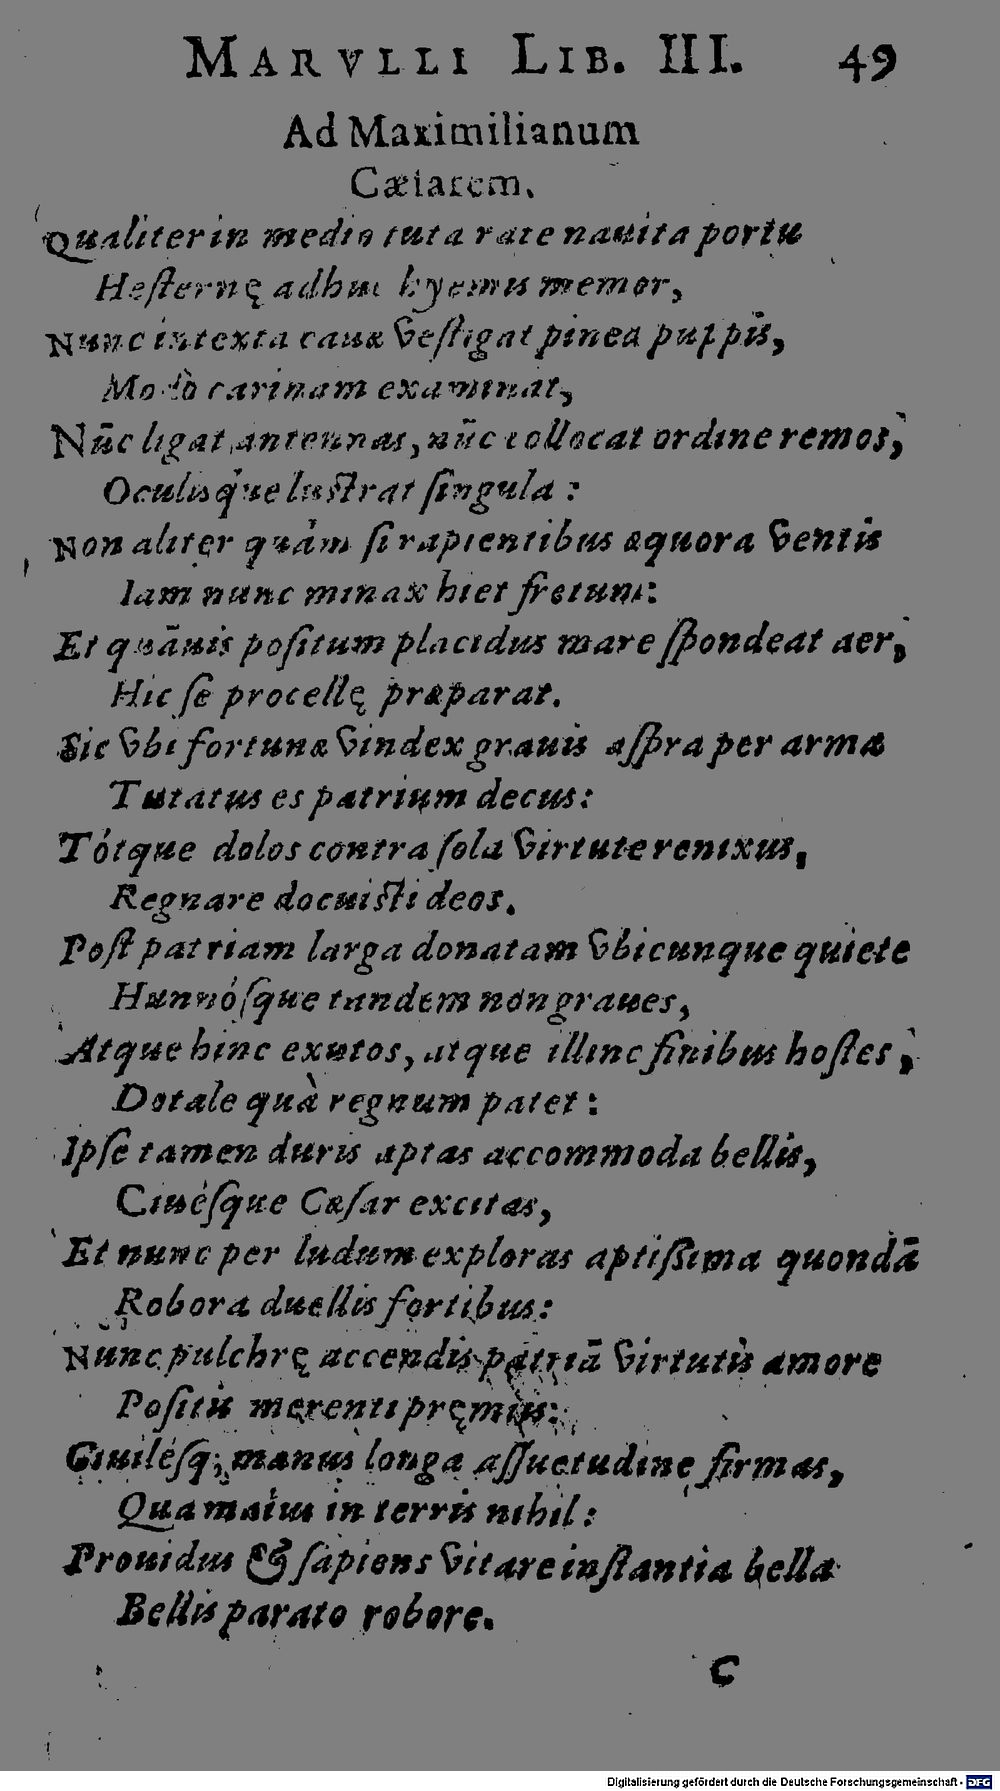 MARVLLI LIB. III. 49
Ad Maximilianum
Cæsarem.
Qualiter in medio tuta rate nauita portu
Hesternę adhuc hyemis memor,
Nunc intexta cauæ vestigat pinea puppis,
Modò carinam examinat,
Nūc ligat antennas, nūc collocat ordine remos,
Oculisq́ue lustrat singula:
Non aliter quàm si rapientibus æquora ventis
Iam nunc minax hiet fretum:
Et quāuis positum placidus mare spondeat aer,
Hic se procellę præparat.
Sic vbi fortunæ vindex grauis aspra per arma
Tutatus es patrium decus:
Tótque dolos contra sola virtute renixus,
Regnare docuisti deos.
Post patriam larga donatam vbicunque quiete
Hunnósque tandem non graues,
Atque hinc exutos, atque illinc finibus hostes,
Dotale quà regnum patet:
Ipse tamen duris aptas accommoda bellis,
Ciuésque Cæsar excitas,
Et nunc per ludum exploras aptissima quondā
Robora duellis fortibus:
Nunc pulchrę accendis patriā virtutis amore
Positis merenti pręmiis:
Ciuilésq; manus longa assuetudine firmas,
Qua maius in terris nihil:
Prouidus & sapiens vitare instantia bella
Bellis parato robore.
C
Digitalisierung gefördert durch die Deutsche Forschungsgemeinschaft - DFG